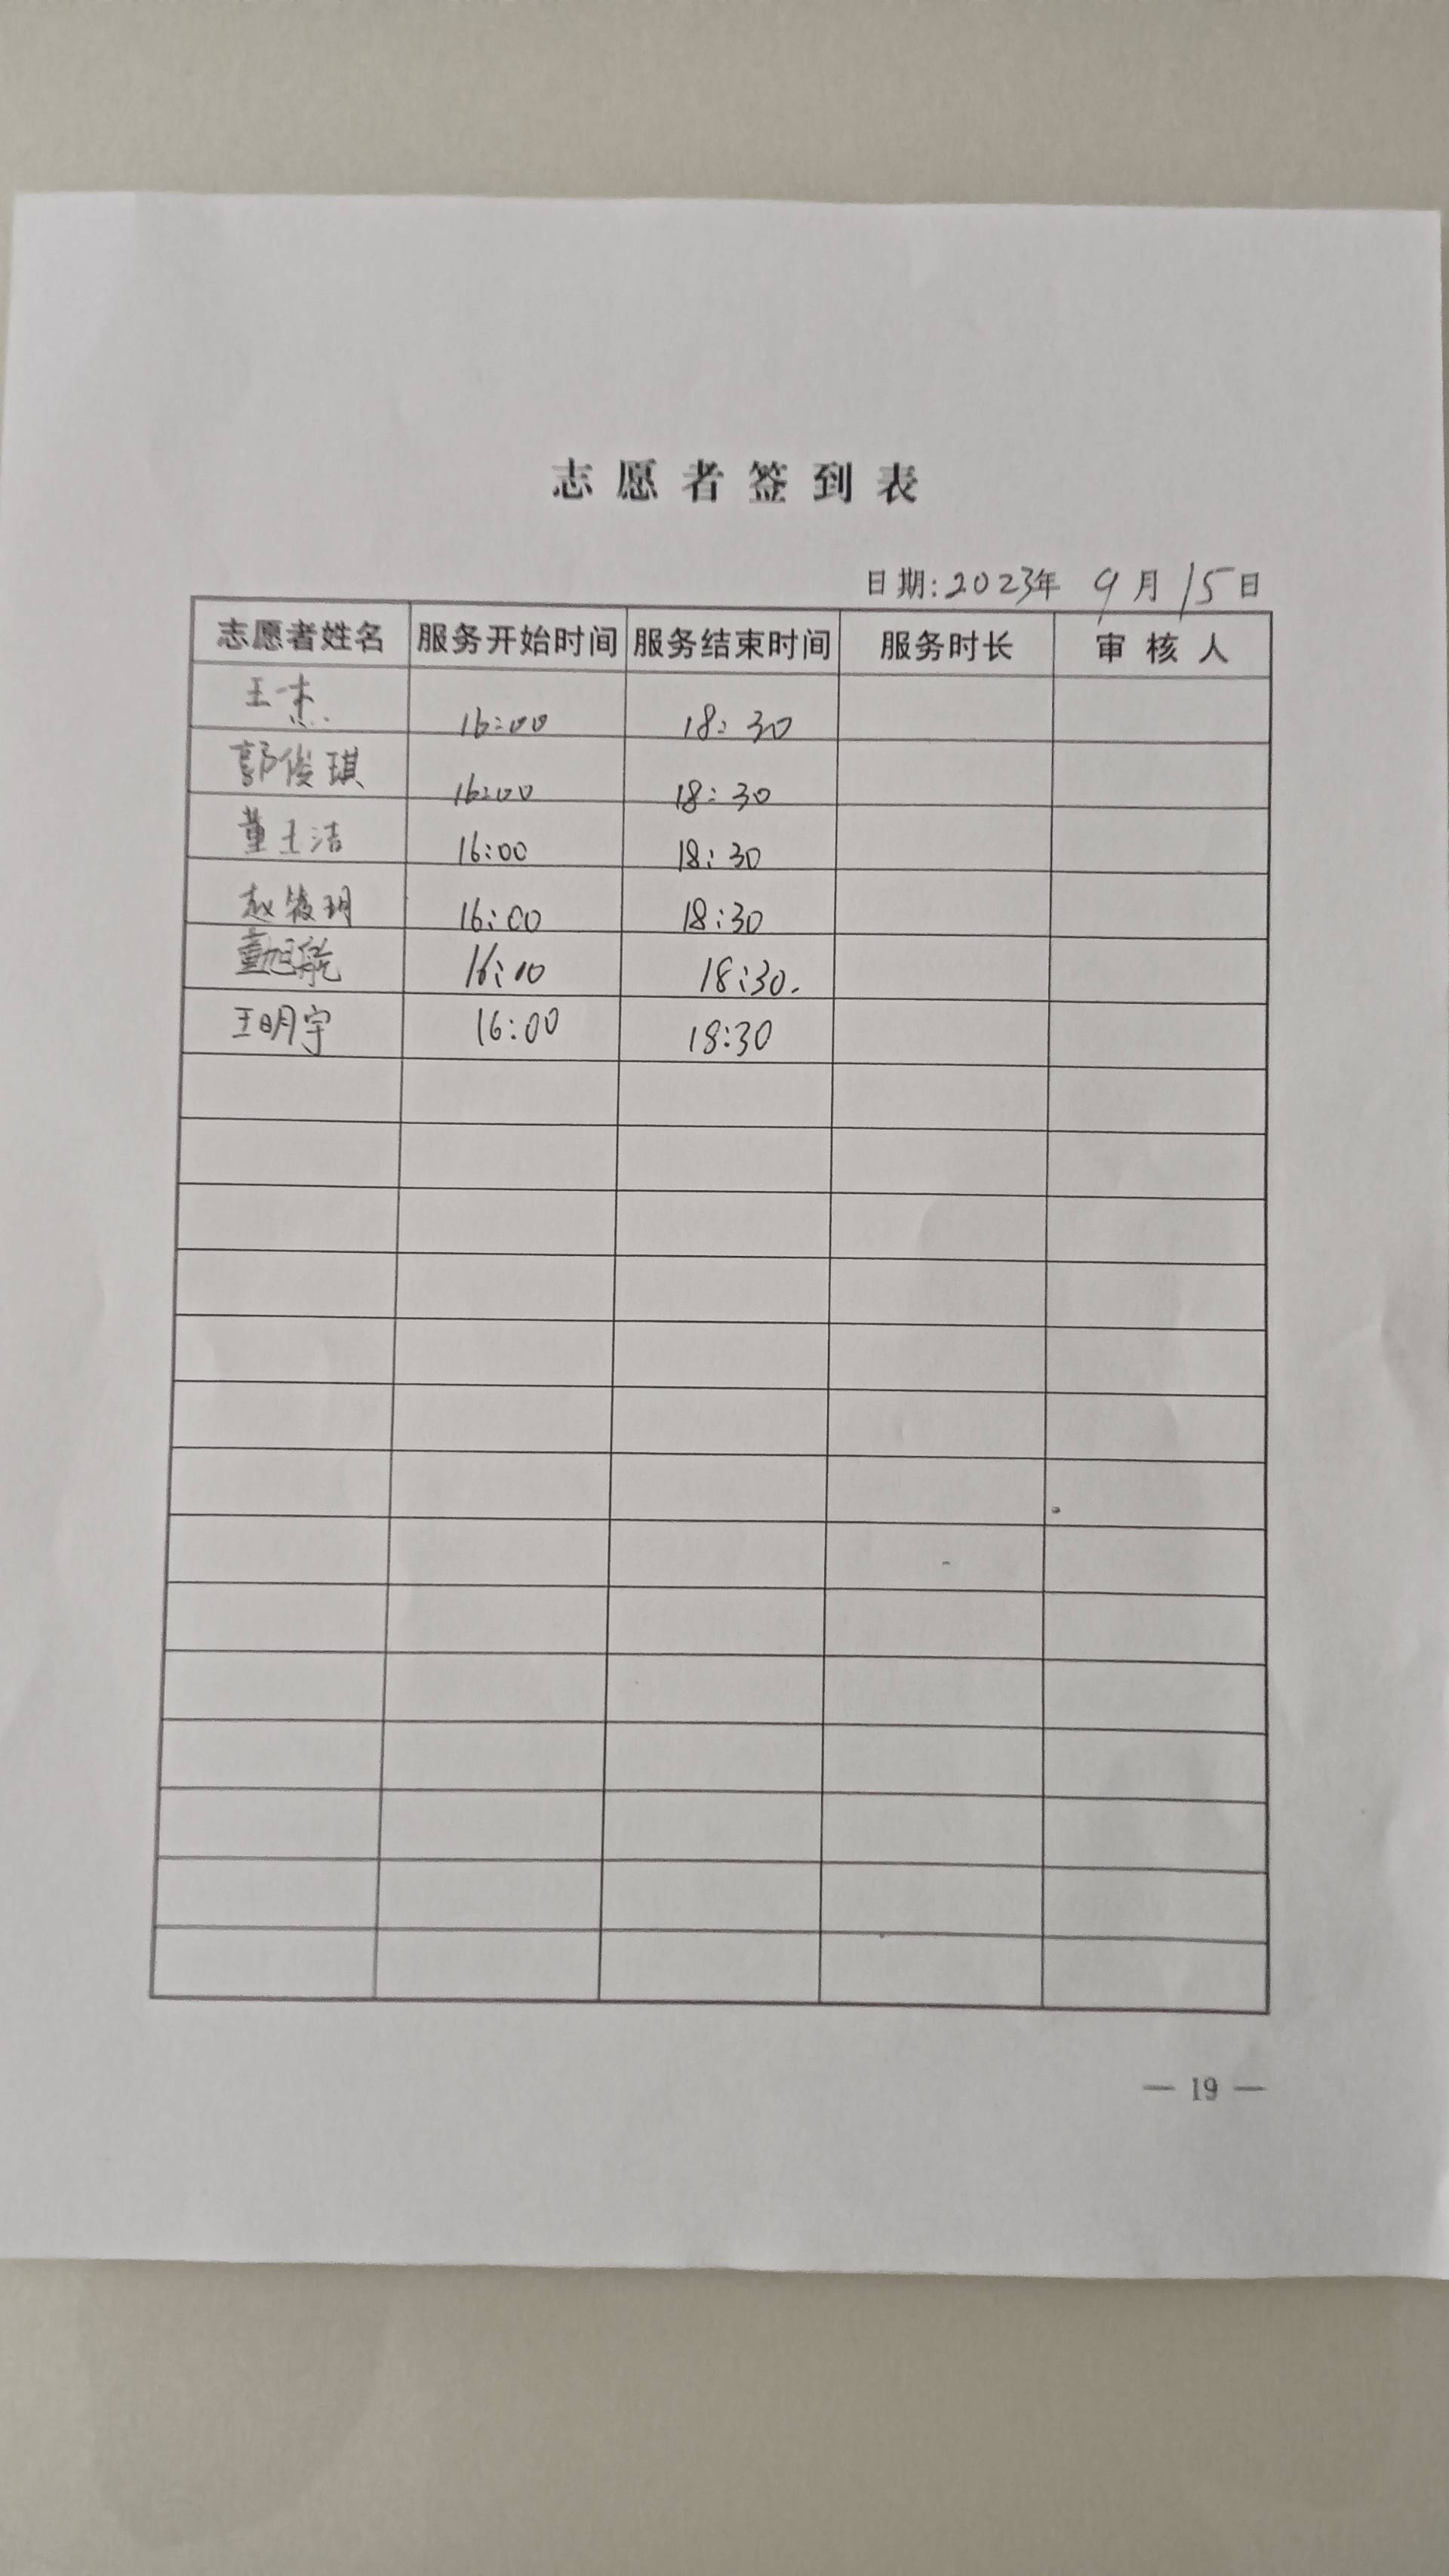 志愿者签到表
日期:2023年 9月15日
志愿者姓名 服务开始时间 服务结束时间 服务时长 审核人
王一杰 16:00 18:30
郭俊琪 16:00 18:30
董土洁 16:00 18:30
赵筱玥 16:00 18:30
董旭航 16:00 18:30.
王明宇 16:00 18:30
— 19 —